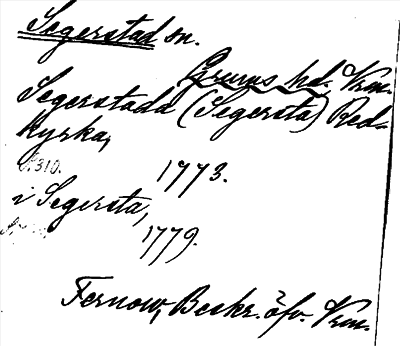 Segerstad sn.
Grums hd. Vrm.
Segerstada (Segersta) Red-
kyrka,
s. 310.
1773.
i Segersta,
1779.
Fernow, Beskr. öfv. Vrm.